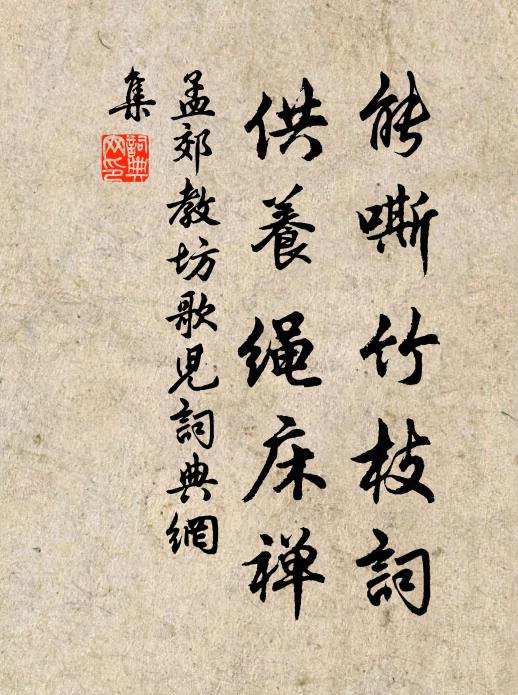 能嘶竹枝詞
供養绳床禅
孟郊教坊歌兒詞典網
集
詞典
网印